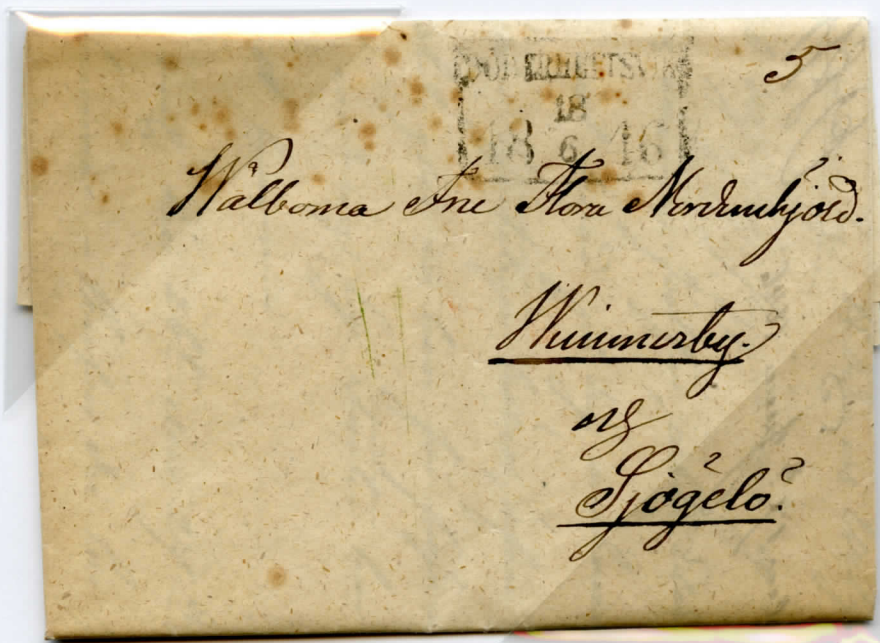 5
SÖDERTELJE
18
18 6 46
Wälborna Frue Flora Nordenskjöld.
Wimmerby.
och
Sjögelö.